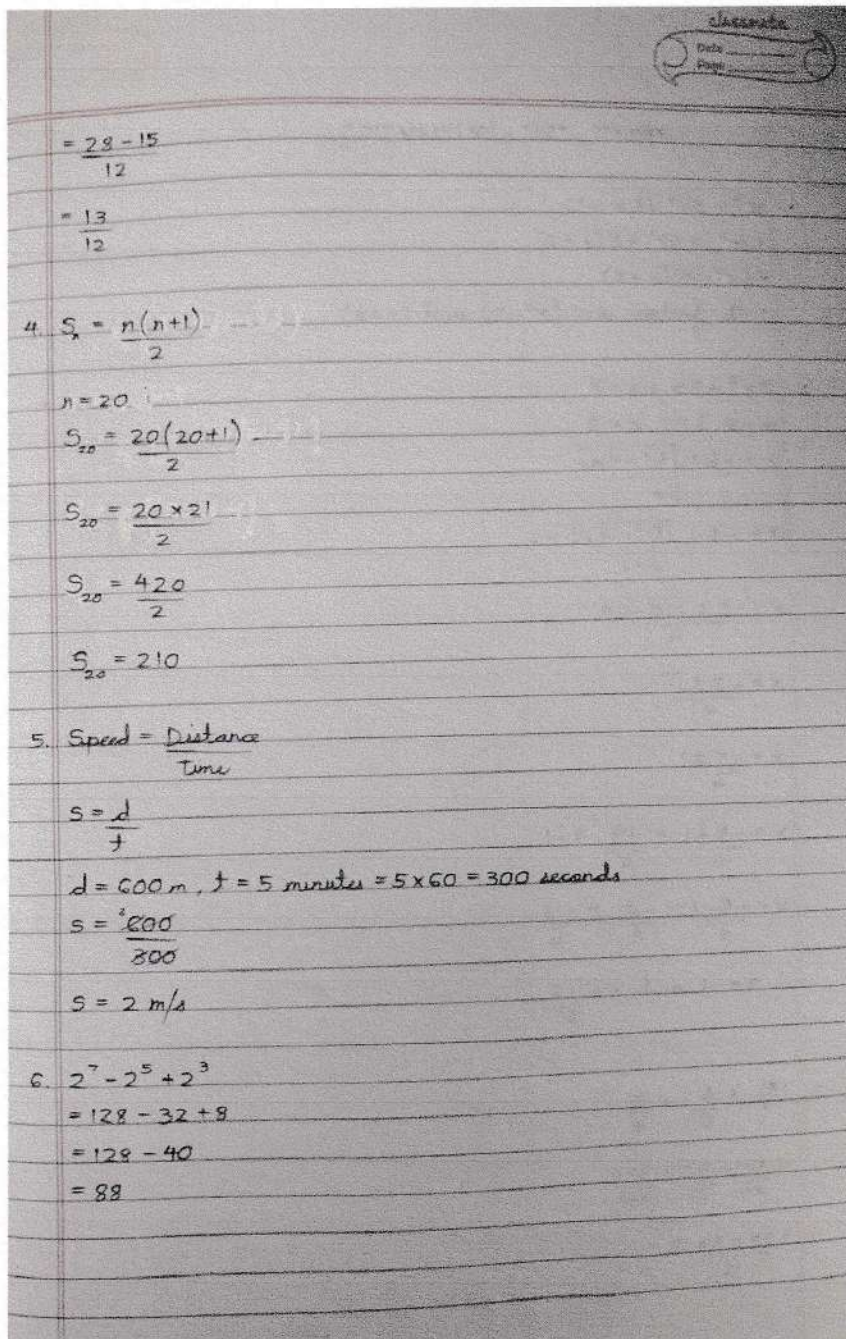 classmate
Date
Page
= 28 - 15
12
= 13
12
4. Sₙ = n(n+1)
2
n = 20
S₂₀ = 20(20+1)
2
S₂₀ = 20 × 21
2
S₂₀ = 420
2
S₂₀ = 210
5. Speed = Distance
Time
s = d
t
d = 600 m, t = 5 minutes = 5 × 60 = 300 seconds
s = ²600
300
s = 2 m/s
6. 2⁷ - 2⁵ + 2³
= 128 - 32 + 8
= 128 - 40
= 88